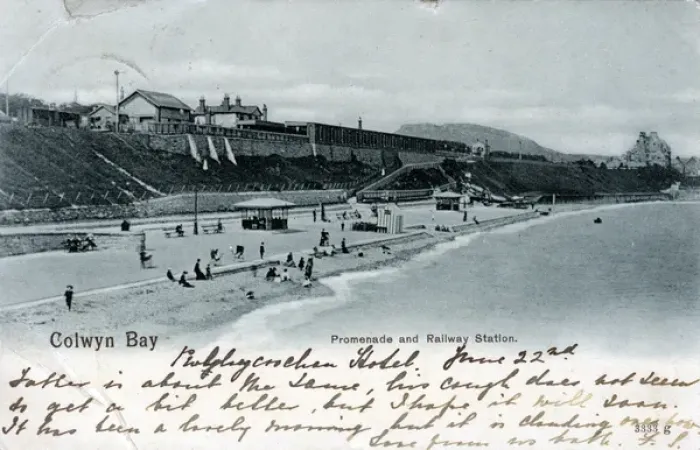 Colwyn Bay
Promenade and Railway Station.
Hotel June 22nd
Father is about the same, his cough does not seem
to get a bit better, but I hope it will soon.
It has been a lovely morning but it is clouding over now
Love from us both. F. S.
3333 g